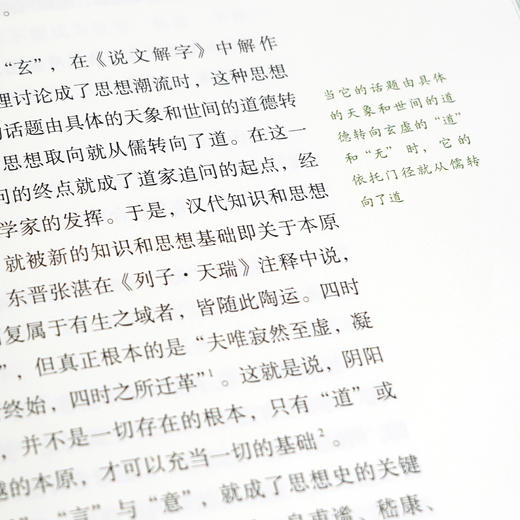 。
“玄”，在《说文解字》中解作
理讨论成了思想潮流时，这种思想
的话题由具体的天象和世间的道德转
思想取向就从儒转向了道。在这一
问的终点就成了道家追问的起点，经
学家的发挥。于是，汉代知识和思想
就被新的知识和思想基础即关于本原
东晋张湛在《列子·天瑞》注释中说，
复属于有生之域者，皆随此陶运。四时
”，但真正根本的是“夫唯寂然至虚，凝
终始，四时之所迁革”1。这就是说，阴阳
，并不是一切存在的根本，只有“道”或
越的本原，才可以充当一切的基础2。
“言”与“意”，就成了思想史的关键
皇甫谧、嵇康、
当它的话题由具体
的天象和世间的道
德转向玄虚的“道”
和“无”时，它的
依托门径就从儒转
向了道